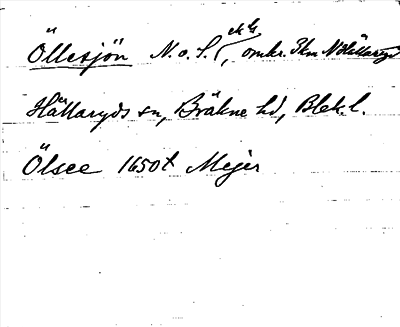 Öllesjön N. o. S., ek bl, omkr. 7km N Hällaryd
Hällaryds sn, Bräkne hd, Blek. l.
Ölsee 1650t Mejer